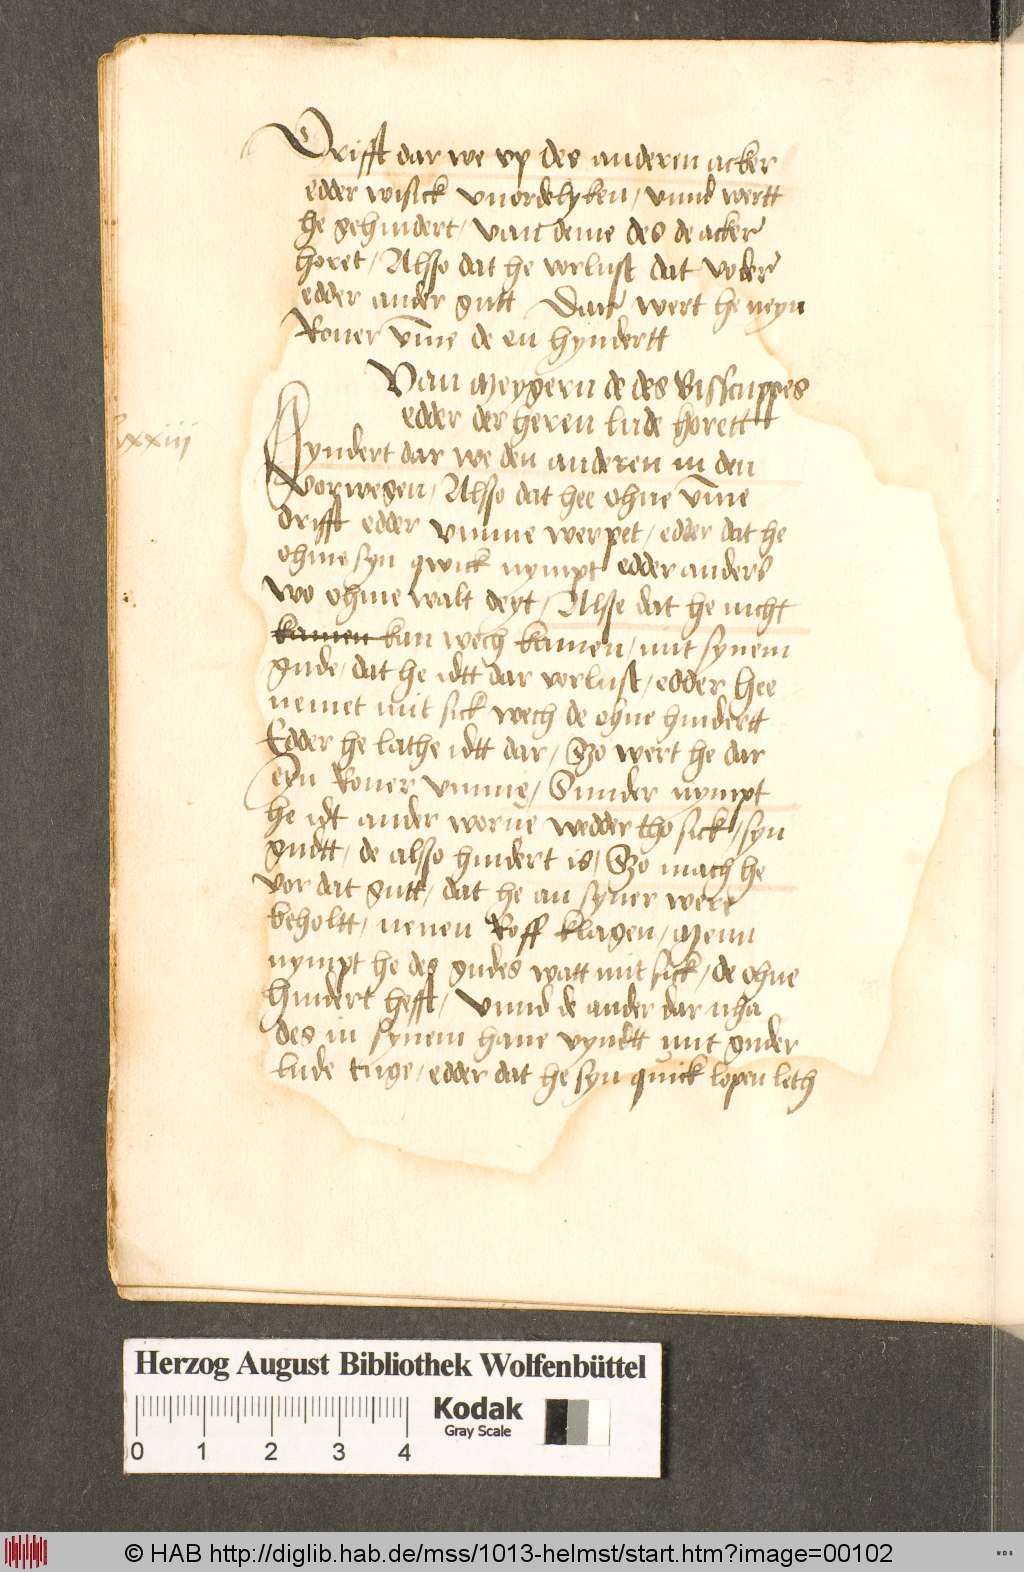 Drifft dar we vp des anderen acker
edder wisick vnordelyken / vnnd wertt
he gehindert / van deme des de acker
horet / Alsso dat he vorlust dat voder
edder ander gutt Dar wert he neyn
Rouer vmme de en hyndertt
Van Meygern de des Bisscuppes
edder der heren lude horett
xxxiii
Hyndert dar we den anderen in den
vorwegen / Alsso dat hee ohne vmme
drifft edder vmme werpet / edder dat he
ohme syn qwick nympt edder anders
wo ohme walt deyt / Alsse dat he nicht
kamen kan wech kamen / mit synem
gude / dat he idtt dar vorlust / edder hee
nemet mit sick wech de ohne hindertt
Edder he lathe idtt dar / Szo wert he dar
eyn Rouer vmme / Sunder nympt
he idt ander worue wedder tho sick / syn
gudtt / de alsso hindert is / Szo mach he
vor dat gutt / dat he an syner were
beholtt / nenen Roff klagen / Menn
nympt he des gudes watt mit sick / de ohne
hindert hefft / Vnnd de ander dar nha
des in synem haue vyndtt mit guder
lude tuge / edder dat he syn quick lopen leth
Herzog August Bibliothek Wolfenbüttel
Kodak
Gray Scale
0 1 2 3 4
© HAB http://diglib.hab.de/mss/1013-helmst/start.htm?image=00102